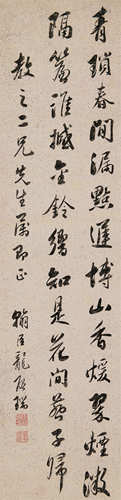 青鎖春閒漏點遲博山香煖翠煙微
隔簾誰撼金鈴響知是花間燕子歸
敬之二兄先生屬即正
翰臣龍啟瑞